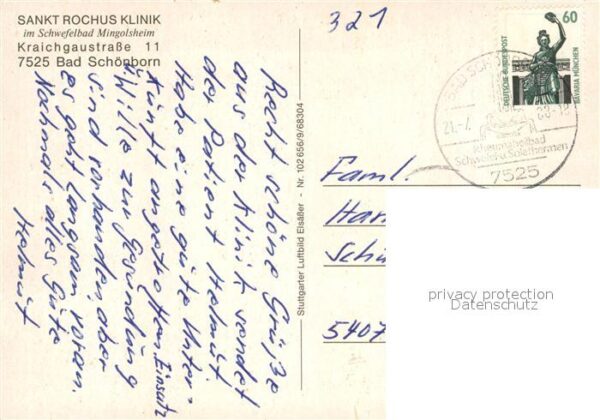 SANKT ROCHUS KLINIK
im Schwefelbad Mingolsheim
Kraichgaustraße 11
7525 Bad Schönborn
321
Recht schöne Grüße
aus der Klinik sendet
der Patient Helmut.
Habe eine gute Unter-
kunft angetroffen. Einsatz
u. Wille zur Gesundung
sind vorhanden, aber
es geht langsam voran.
Nochmals alles Gute
Helmut
Stuttgarter Luftbild Elsäßer - Nr. 102 656/9/68304
60
DEUTSCHE BUNDESPOST
BAVARIA MÜNCHEN
BAD SCHÖ
21.-7.
Thermalbad
Schwefel- u. Solethermen
7525
Faml.
Han
Schü
5407
privacy protection
Datenschutz